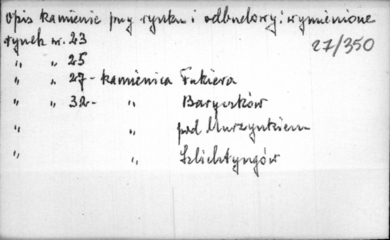 Opis kamienic przy rynku i odbudowy: wymienione
rynek nr. 23
27/350
" " 25
" " 27 - kamienica Fukiera
" " 32 - " Baryczków
" " pod Murzynkiem
" " Szlichtyngów